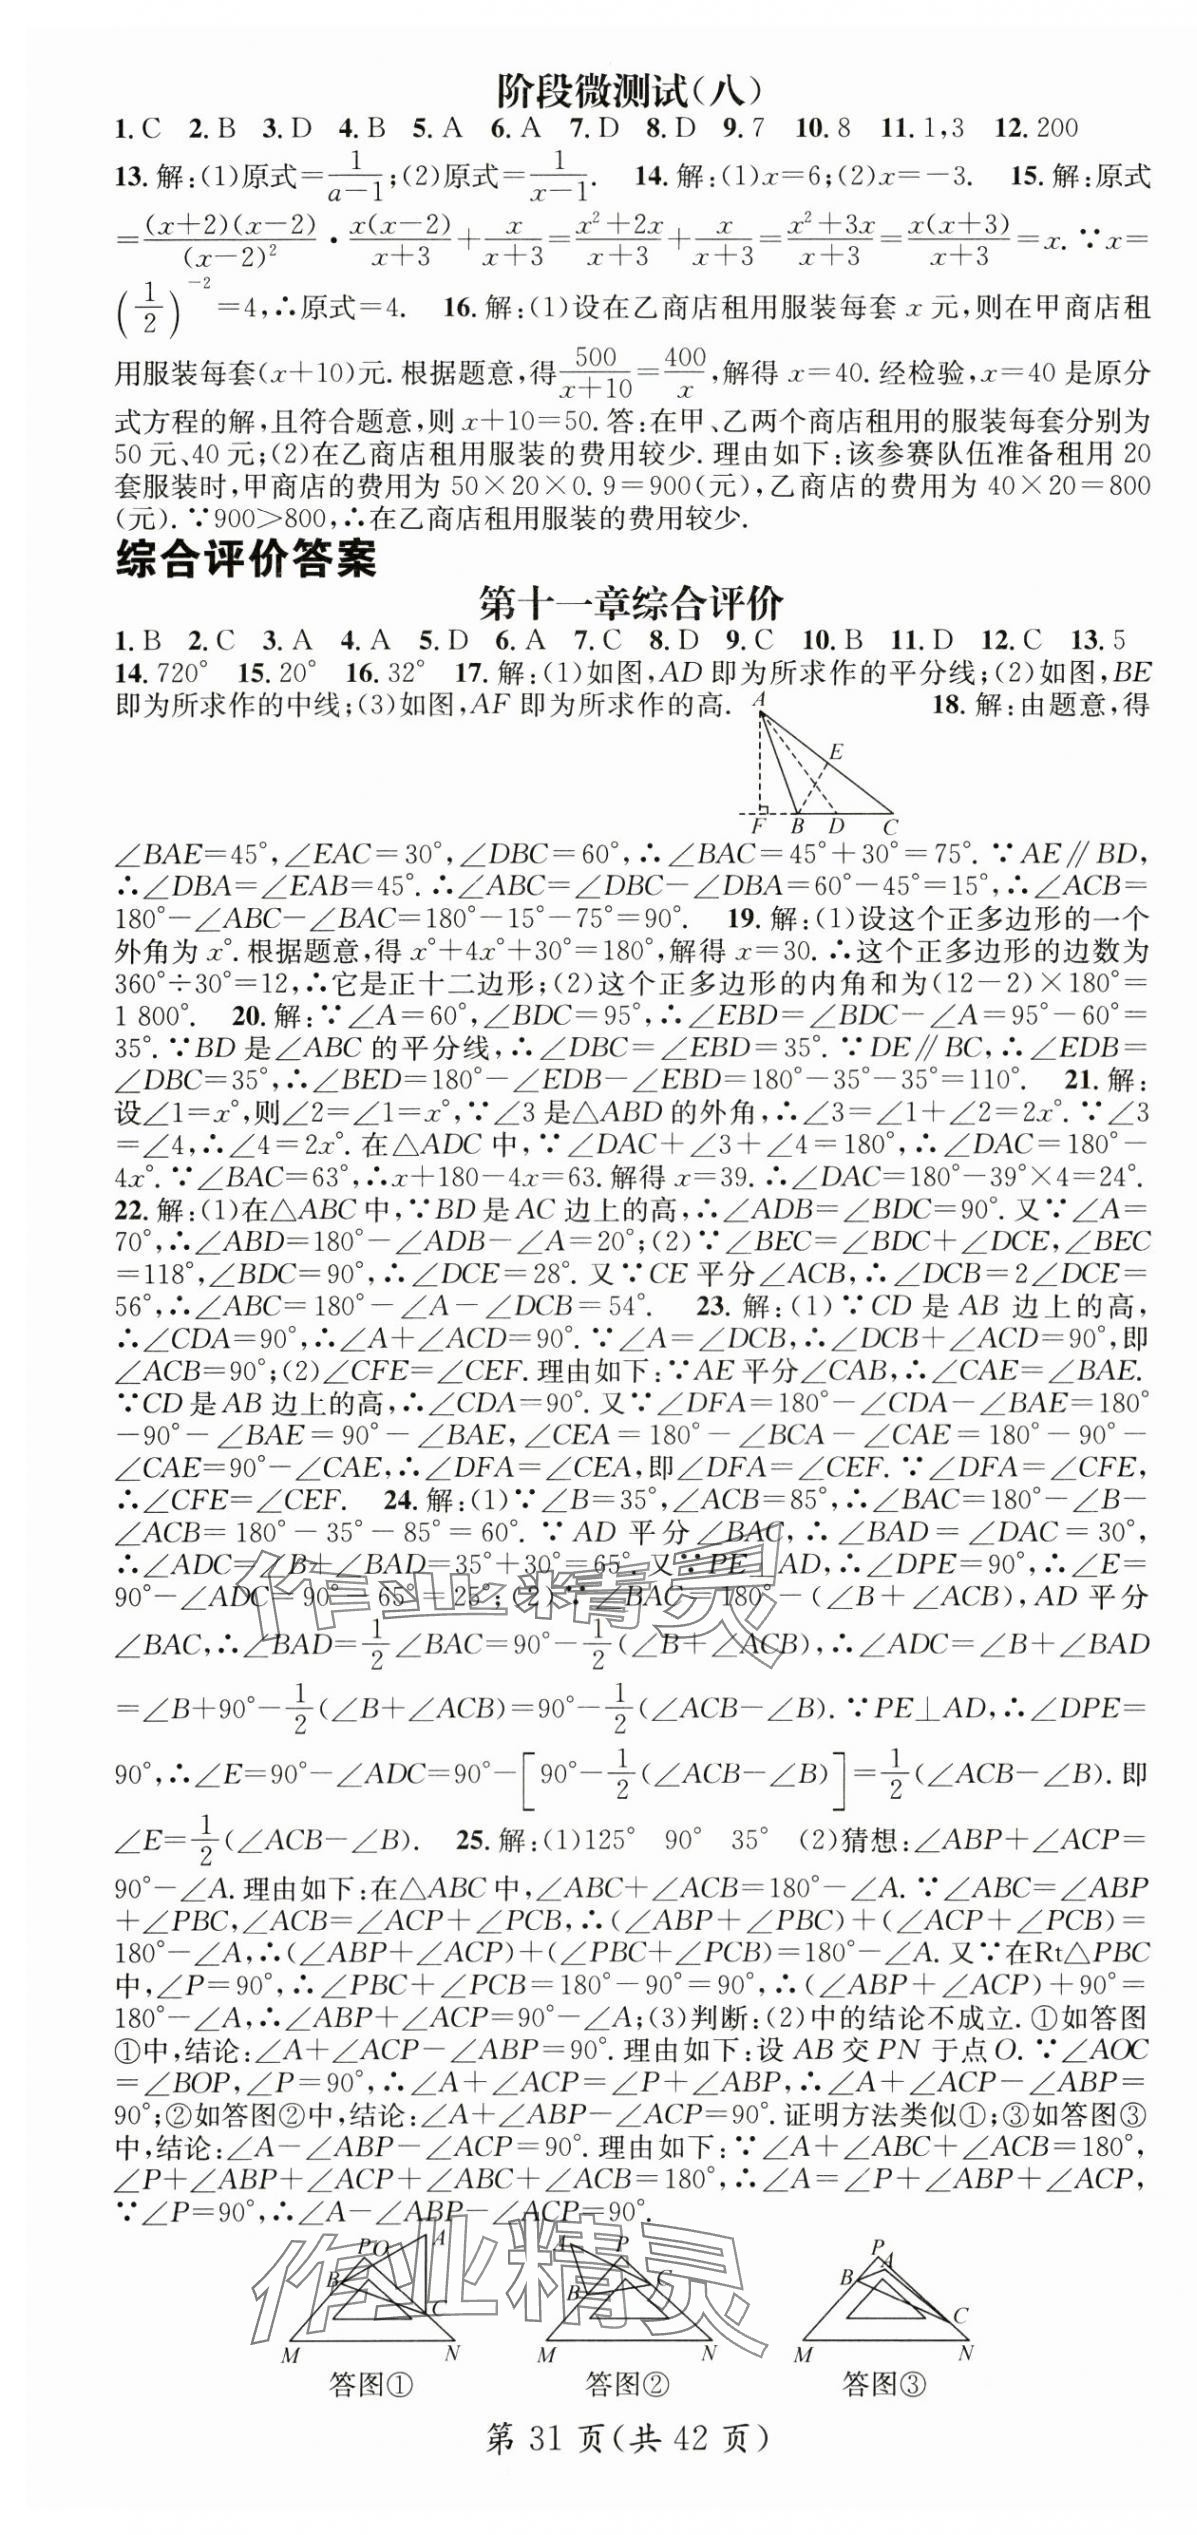 阶段微测试(八)
1. C 2. B 3. D 4. B 5. A 6. A 7. D 8. D 9. 7 10. 8 11. 1,3 12. 200
13. 解:(1)原式=1/(a-1);(2)原式=1/(x-1). 14. 解:(1)x=6;(2)x=-3. 15. 解:原式
=(x+2)(x-2)/(x-2)²·x(x-2)/(x+3)+x/(x+3)=(x²+2x)/(x+3)+x/(x+3)=(x²+3x)/(x+3)=x(x+3)/(x+3)=x. ∵x=
(1/2)⁻²=4,∴原式=4. 16. 解:(1)设在乙商店租用服装每套 x 元,则在甲商店租
用服装每套(x+10)元.根据题意,得500/(x+10)=400/x,解得 x=40.经检验,x=40 是原分
式方程的解,且符合题意,则 x+10=50.答:在甲、乙两个商店租用的服装每套分别为
50 元、40 元;(2)在乙商店租用服装的费用较少.理由如下:该参赛队伍准备租用 20
套服装时,甲商店的费用为 50×20×0.9=900(元),乙商店的费用为 40×20=800
(元).∵900>800,∴在乙商店租用服装的费用较少.
综合评价答案
第十一章综合评价
1. B 2. C 3. A 4. A 5. D 6. A 7. C 8. D 9. C 10. B 11. D 12. C 13. 5
14. 720° 15. 20° 16. 32° 17. 解:(1)如图,AD 即为所求作的平分线;(2)如图,BE
即为所求作的中线;(3)如图,AF 即为所求作的高. A 18. 解:由题意,得
E
F B D C
∠BAE=45°,∠EAC=30°,∠DBC=60°,∴∠BAC=45°+30°=75°.∵AE∥BD,
∴∠DBA=∠EAB=45°.∴∠ABC=∠DBC-∠DBA=60°-45°=15°,∴∠ACB=
180°-∠ABC-∠BAC=180°-15°-75°=90°. 19. 解:(1)设这个正多边形的一个
外角为 x°.根据题意,得 x°+4x°+30°=180°,解得 x=30.∴这个正多边形的边数为
360°÷30°=12,∴它是正十二边形;(2)这个正多边形的内角和为(12-2)×180°=
1 800°. 20. 解:∵∠A=60°,∠BDC=95°,∴∠EBD=∠BDC-∠A=95°-60°=
35°.∵BD 是∠ABC 的平分线,∴∠DBC=∠EBD=35°.∵DE∥BC,∴∠EDB=
∠DBC=35°,∴∠BED=180°-∠EDB-∠EBD=180°-35°-35°=110°. 21. 解:
设∠1=x°,则∠2=∠1=x°,∵∠3是△ABD 的外角,∴∠3=∠1+∠2=2x°.∵∠3
=∠4,∴∠4=2x°.在△ADC 中,∵∠DAC+∠3+∠4=180°,∴∠DAC=180°-
4x°.∵∠BAC=63°,∴x+180-4x=63.解得 x=39.∴∠DAC=180°-39°×4=24°.
22. 解:(1)在△ABC 中,∵BD 是 AC 边上的高,∴∠ADB=∠BDC=90°.又∵∠A=
70°,∴∠ABD=180°-∠ADB-∠A=20°;(2)∵∠BEC=∠BDC+∠DCE,∠BEC
=118°,∠BDC=90°,∴∠DCE=28°.又∵CE 平分∠ACB,∴∠DCB=2∠DCE=
56°,∴∠ABC=180°-∠A-∠DCB=54°. 23. 解:(1)∵CD 是 AB 边上的高,
∴∠CDA=90°,∴∠A+∠ACD=90°.∵∠A=∠DCB,∴∠DCB+∠ACD=90°,即
∠ACB=90°;(2)∠CFE=∠CEF.理由如下:∵AE 平分∠CAB,∴∠CAE=∠BAE.
∵CD 是 AB 边上的高,∴∠CDA=90°.又∵∠DFA=180°-∠CDA-∠BAE=180°
-90°-∠BAE=90°-∠BAE,∠CEA=180°-∠BCA-∠CAE=180°-90°-
∠CAE=90°-∠CAE,∴∠DFA=∠CEA,即∠DFA=∠CEF.∵∠DFA=∠CFE,
∴∠CFE=∠CEF. 24. 解:(1)∵∠B=35°,∠ACB=85°,∴∠BAC=180°-∠B-
∠ACB=180°-35°-85°=60°.∵AD 平分∠BAC,∴∠BAD=∠DAC=30°,
∴∠ADC=∠B+∠BAD=35°+30°=65°.又∵PE⊥AD,∴∠DPE=90°,∴∠E=
90°-∠ADC=90°-65°=25°;(2)∵∠BAC=180°-(∠B+∠ACB),AD 平分
∠BAC,∴∠BAD=1/2∠BAC=90°-1/2(∠B+∠ACB),∴∠ADC=∠B+∠BAD
=∠B+90°-1/2(∠B+∠ACB)=90°-1/2(∠ACB-∠B).∵PE⊥AD,∴∠DPE=
90°,∴∠E=90°-∠ADC=90°-[90°-1/2(∠ACB-∠B)]=1/2(∠ACB-∠B).即
∠E=1/2(∠ACB-∠B). 25. 解:(1)125° 90° 35° (2)猜想:∠ABP+∠ACP=
90°-∠A.理由如下:在△ABC 中,∠ABC+∠ACB=180°-∠A.∵∠ABC=∠ABP
+∠PBC,∠ACB=∠ACP+∠PCB,∴(∠ABP+∠PBC)+(∠ACP+∠PCB)=
180°-∠A,∴(∠ABP+∠ACP)+(∠PBC+∠PCB)=180°-∠A.又∵在Rt△PBC
中,∠P=90°,∴∠PBC+∠PCB=180°-90°=90°,∴(∠ABP+∠ACP)+90°=
180°-∠A,∴∠ABP+∠ACP=90°-∠A;(3)判断:(2)中的结论不成立.①如答图
①中,结论:∠A+∠ACP-∠ABP=90°.理由如下:设 AB 交 PN 于点 O.∵∠AOC
=∠BOP,∠P=90°,∴∠A+∠ACP=∠P+∠ABP,∴∠A+∠ACP-∠ABP=
90°;②如答图②中,结论:∠A+∠ABP-∠ACP=90°.证明方法类似①;③如答图③
中,结论:∠A-∠ABP-∠ACP=90°.理由如下:∵∠A+∠ABC+∠ACB=180°,
∠P+∠ABP+∠ACP+∠ABC+∠ACB=180°,∴∠A=∠P+∠ABP+∠ACP,
∵∠P=90°,∴∠A-∠ABP-∠ACP=90°.
作业精灵
作业精灵
P O A B C M N
A P B C M N
P A B C M N
答图① 答图② 答图③
第 31 页(共 42 页)